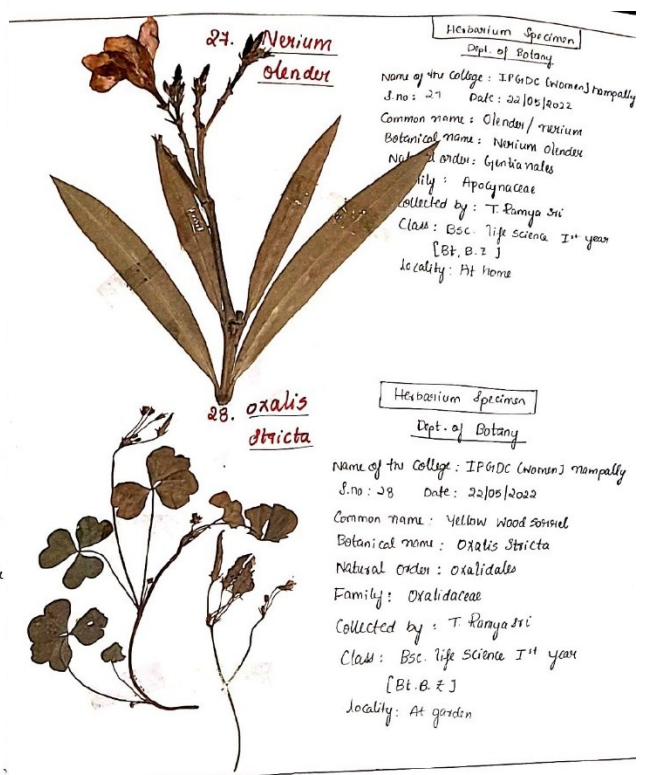 27. Nerium
olender
Herbarium Specimen
Dept. of Botany
Name of the College : IPGDC (Women) nampally
S.no : 27 Date : 22/05/2022
Common name : Olender / nerium
Botanical name : Nerium Olender
order : Gentianales
: Apocynaceae
ollected by : T. Ramya Sri
Class : Bsc. life science Ist year
[Bt, B. Z ]
locality : At home
28. oxalis
Stricta
Herbarium Specimen
Dept. of Botany
Name of the College : IPGDC (women) nampally
S.no : 28 Date : 22/05/2022
Common name : Yellow wood sorriel
Botanical name : Oxalis Stricta
Natural order : oxalidales
Family : Oxalidaceae
Collected by : T. Ramya Sri
Class : Bsc. life science Ist year
[Bt. B. Z ]
locality : At garden